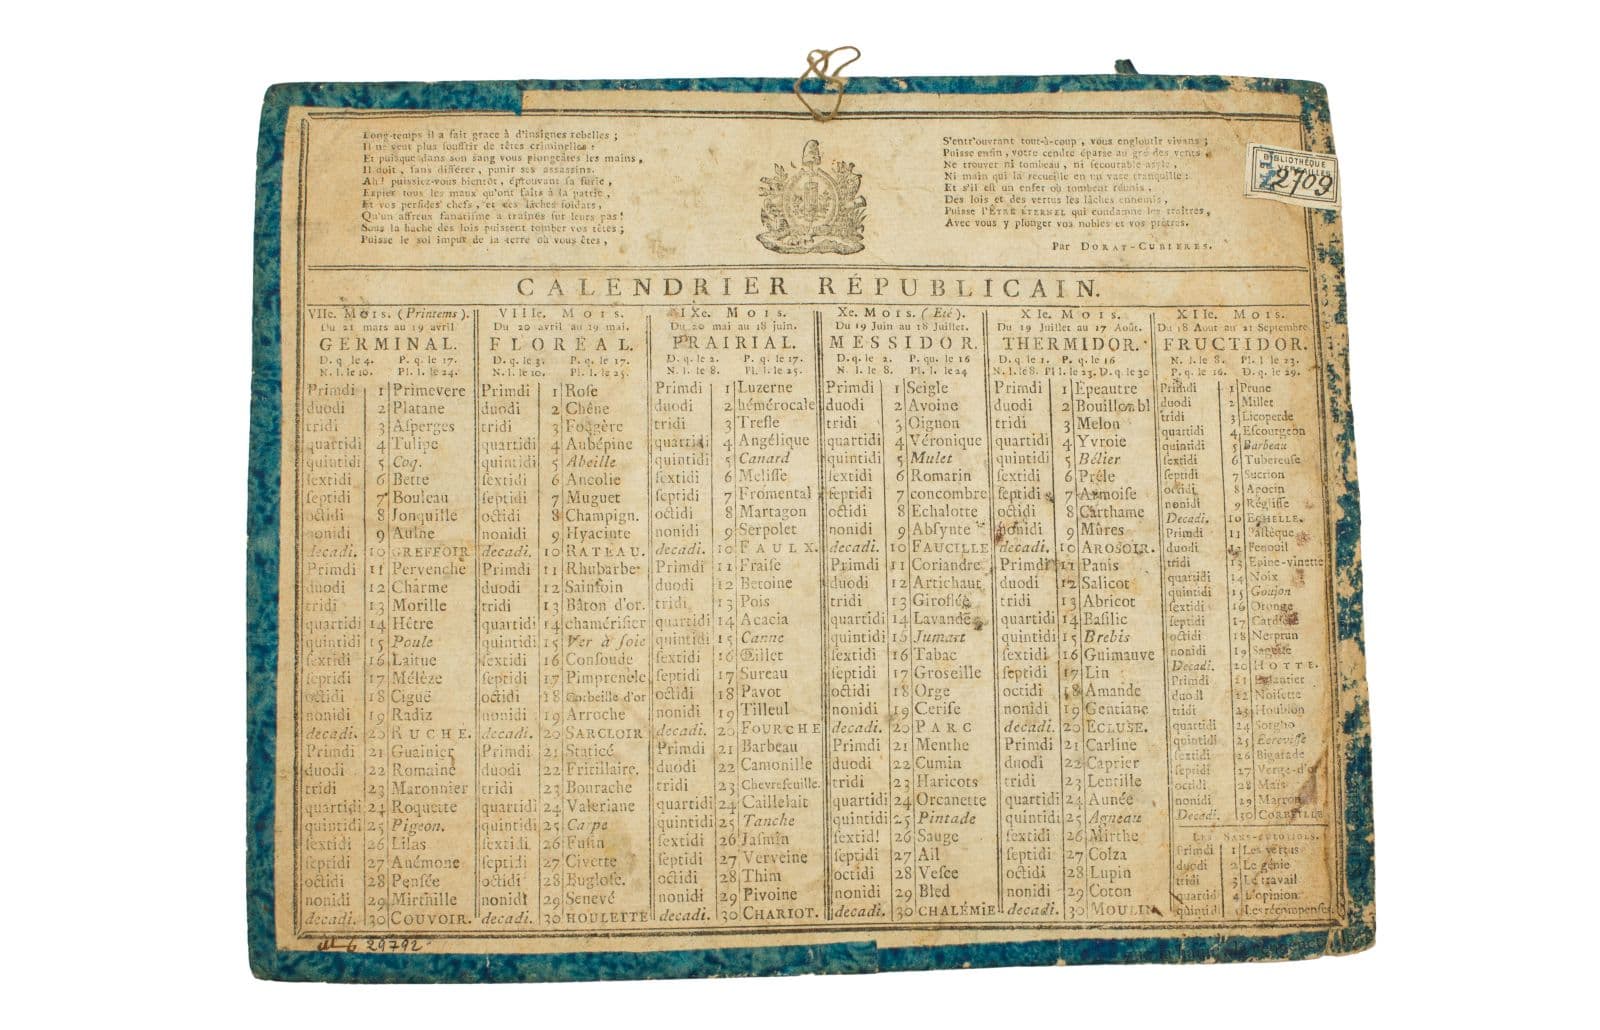 Long-temps il a fait grace à d'insignes rebelles ;
Il ne veut plus souffrir de têtes criminelles :
Et puisque dans son sang vous plongeâtes les mains,
Il doit, sans différer, punir ses assassins.
Ah ! puissiez-vous bientôt, éprouvant sa furie,
Expier tous les maux qu'ont faits à la patrie,
Et vos perfides chefs, et ces lâches soldats,
Qu'un affreux fanatisme a traînés sur leurs pas !
Sous la hache des lois puissent tomber vos têtes ;
Puisse le sol impur de la terre où vous êtes,
S'entr'ouvrant tout-à-coup, vous engloutir vivans ;
Puisse enfin, votre cendre éparse au gré des vents
Ne trouver ni tombeau, ni secourable asyle,
Ni main qui la recueille en un vase tranquille :
Et s'il est un enfer où tombent réunis,
Des lois et des vertus les lâches ennemis,
Puisse l'ÊTRE ÉTERNEL qui condamne les traîtres,
Avec vous y plonger vos nobles et vos prêtres.
Par DORAT-CUBIERES.
BIBLIOTHÈQUE
2709
CALENDRIER RÉPUBLICAIN.
VIIe. MOIS. (Printems).
Du 21 mars au 19 avril
GERMINAL.
D. q. le 4. P. q. le 17.
N. l. le 10. Pl. l. le 24.
Primdi 1 Primevere
duodi 2 Platane
tridi 3 Asperges
quartidi 4 Tulipe
quintidi 5 Coq.
sextidi 6 Bette
septidi 7 Bouleau
octidi 8 Jonquille
nonidi 9 Aulne
decadi. 10 GREFFOIR
Primdi 11 Pervenche
duodi 12 Charme
tridi 13 Morille
quartidi 14 Hêtre
quintidi 15 Poule
sextidi 16 Laitue
septidi 17 Mélèze
octidi 18 Ciguë
nonidi 19 Radiz
decadi. 20 RUCHE.
Primdi 21 Guainier
duodi 22 Romaine
tridi 23 Maronnier
quartidi 24 Roquette
quintidi 25 Pigeon.
sextidi 26 Lilas
septidi 27 Anémone
octidi 28 Pensée
nonidi 29 Mirthille
decadi. 30 COUVOIR.
VIIIe. MOIS.
Du 20 avril au 19 mai.
FLORÉAL.
D. q. le 3. P. q. le 17.
N. l. le 10. Pl. l. le 25.
Primdi 1 Rose
duodi 2 Chêne
tridi 3 Fougère
quartidi 4 Aubépine
quintidi 5 Abeille
sextidi 6 Ancolie
septidi 7 Muguet
octidi 8 Champign.
nonidi 9 Hyacinte
decadi. 10 RATEAU.
Primdi 11 Rhubarbe
duodi 12 Sainfoin
tridi 13 Bâton d'or.
quartidi 14 chamérisier
quintidi 15 Ver à soie
sextidi 16 Consoude
septidi 17 Pimprenele
octidi 18 Corbeille-d'or
nonidi 19 Arroche
decadi. 20 SARCLOIR
Primdi 21 Staticé
duodi 22 Fritillaire.
tridi 23 Bourache
quartidi 24 Valeriane
quintidi 25 Carpe
sextidi 26 Fusin
septidi 27 Civette
octidi 28 Buglose.
nonidi 29 Senevé
decadi. 30 HOULETTE
IXe. MOIS.
Du 20 mai au 18 juin.
PRAIRIAL.
D. q. le 2. P. q. le 17.
N. l. le 8. Pl. l. le 25.
Primdi 1 Luzerne
duodi 2 hémérocale
tridi 3 Trefle
quartidi 4 Angélique
quintidi 5 Canard
sextidi 6 Melisse
septidi 7 Fromental
octidi 8 Martagon
nonidi 9 Serpolet
decadi. 10 FAULX.
Primdi 11 Fraise
duodi 12 Betoine
tridi 13 Pois
quartidi 14 Acacia
quintidi 15 Canne
sextidi 16 Œillet
septidi 17 Sureau
octidi 18 Pavot
nonidi 19 Tilleul
decadi. 20 FOURCHE
Primdi 21 Barbeau
duodi 22 Camonille
tridi 23 Chevrefeuille.
quartidi 24 Caillelait
quintidi 25 Tanche
sextidi 26 Jasmin
septidi 27 Verveine
octidi 28 Thim
nonidi 29 Pivoine
decadi. 30 CHARIOT.
Xe. MOIS. (Eté).
Du 19 Juin au 18 Juillet.
MESSIDOR.
D. q. le 2. P. qu. le 16
N. l. le 8. Pl. l. le 24
Primdi 1 Seigle
duodi 2 Avoine
tridi 3 Oignon
quartidi 4 Véronique
quintidi 5 Mulet
sextidi 6 Romarin
septidi 7 concombre
octidi 8 Echalotte
nonidi 9 Absynte
decadi. 10 FAUCILLE
Primdi 11 Coriandre
duodi 12 Artichaut
tridi 13 Giroflée
quartidi 14 Lavande
quintidi 15 Jumart
sextidi 16 Tabac
septidi 17 Groseille
octidi 18 Orge
nonidi 19 Cerise
decadi. 20 PARC
Primdi 21 Menthe
duodi 22 Cumin
tridi 23 Haricots
quartidi 24 Orcanette
quintidi 25 Pintade
sextid! 26 Sauge
septidi 27 Ail
octidi 28 Vesce
nonidi 29 Bled
decadi. 30 CHALÉMIE
XIe. MOIS.
Du 19 Juillet au 17 Août.
THERMIDOR.
D. q. le 1. P. q. le 16
N. l. le 8. Pl l. le 23. D. q. le 30
Primdi 1 Epeautre
duodi 2 Bouillon bl
tridi 3 Melon
quartidi 4 Yvroie
quintidi 5 Bélier
sextidi 6 Prêle
septidi 7 Armoise
octidi 8 Carthame
nonidi 9 Mûres
decadi. 10 AROSOIR.
Primdi 11 Panis
duodi 12 Salicot
tridi 13 Abricot
quartidi 14 Basilic
quintidi 15 Brebis
sextidi 16 Guimauve
septidi 17 Lin
octidi 18 Amande
nonidi 19 Gentiane
decadi. 20 ECLUSE.
Primdi 21 Carline
duodi 22 Caprier
tridi 23 Lentille
quartidi 24 Aunée
quintidi 25 Agneau
sextidi 26 Mirthe
septidi 27 Colza
octidi 28 Lupin
nonidi 29 Coton
decadi. 30 MOULIN
XIIe. MOIS.
Du 18 Aout au 21 Septembre
FRUCTIDOR.
N. l. le 8. Pl. l. 23.
P. q. le 16. D. q. le 29.
Primdi 1 Prune
duodi 2 Millet
tridi 3 Licoperde
quartidi 4 Escourgeon
quintidi 5 Barbeau
sextidi 6 Tubereuse
septidi 7 Sucrion
octidi 8 Apocin
nonidi 9 Réglisse
Decadi. 10 ECHELLE.
Primdi 11 Pastèque
duodi 12 Fenouil
tridi 13 Epine-vinette
quartidi 14 Noix
quintidi 15 Goujon
sextidi 16 Orange
septidi 17 Cardère
octidi 18 Nerprun
nonidi 19 Sagette
Decadi. 20 HOTTE.
Primdi 21 Eglantier
duodi 22 Noisette
tridi 23 Houblon
quartidi 24 Sorgho
quintidi 25 Ecrevisse
sextidi 26 Bigarade
septidi 27 Verge-d'or
octidi 28 Maïs
nonidi 29 Marron
Decadi. 30 CORBEILLE
LES SANS-CUTOTIDS.
Primdi 1 Les vertus
duodi 2 Le génie
tridi 3 Le travail
quartid 4 L'opinion
quintid Les récompenses
29792